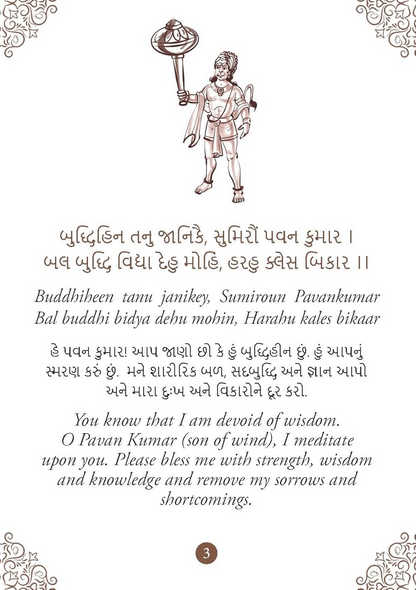 બુદ્ધિહિન તનુ જાનિકૈ, સુમિરૌં પવન કુમાર ।
બલ બુદ્ધિ વિદ્યા દેહુ મોહિ, હરહુ ક્લેસ બિકાર ।।
Buddhiheen tanu janikey, Sumiroun Pavankumar
Bal buddhi bidya dehu mohin, Harahu kales bikaar
હે પવન કુમાર! આપ જાણો છો કે હું બુદ્ધિહીન છું. હું આપનું
સ્મરણ કરું છું. મને શારીરિક બળ, સદબુદ્ધિ અને જ્ઞાન આપો
અને મારા દુઃખ અને વિકારોને દૂર કરો.
You know that I am devoid of wisdom.
O Pavan Kumar (son of wind), I meditate
upon you. Please bless me with strength, wisdom
and knowledge and remove my sorrows and
shortcomings.
3